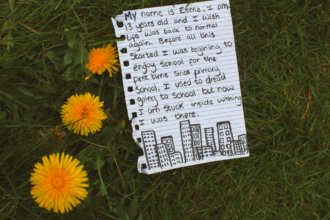 My name is Esme, I am
13 years old and I wish
life was back to normal
again. Before all this
started I was beginning to
enjoy school for the
first time since primary
school, I used to dread
going to school but now
I am stuck inside wishing
I was there.